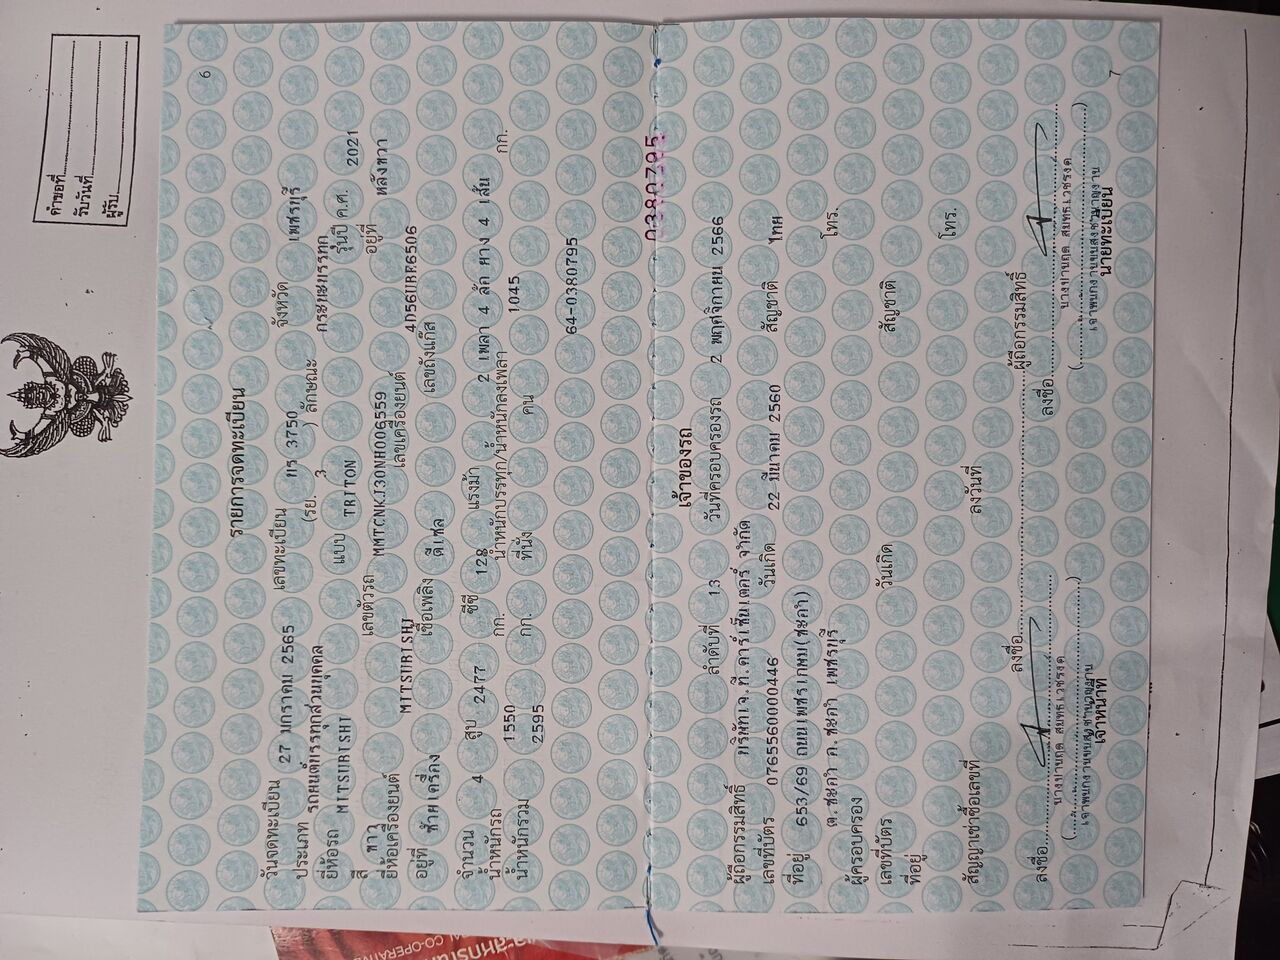 คำขอที่
รับวันที่
ผู้รับ
6
รายการจดทะเบียน
วันจดทะเบียน 27 มกราคม 2565 เลขทะเบียน 3750 จังหวัด เพชรบุรี
ประเภท รถยนต์บรรทุกส่วนบุคคล (รย. 3 ) ลักษณะ กระบะบรรทุก
ยี่ห้อรถ MITSUBISHI แบบ TRITON รุ่นปี ค.ศ. 2021
สี ขาว เลขตัวรถ MMTCNKJ30NH006559 อยู่ที่ หลังขวา
ยี่ห้อเครื่องยนต์ MITSUBISHI เลขเครื่องยนต์ 4D56UBR6506
อยู่ที่ ซ้ายเครื่อง เชื้อเพลิง ดีเซล เลขถังแก๊ส
จำนวน 4 สูบ 2477 ซีซี 128 แรงม้า 2 เพลา 4 ล้อ ยาง 4 เส้น
น้ำหนักรถ 1550 กก. น้ำหนักบรรทุก/น้ำหนักลงเพลา 1045 กก.
น้ำหนักรวม 2595 กก. ที่นั่ง คน
64-0380795
0380795
เจ้าของรถ
ลำดับที่ 13 วันที่ครอบครองรถ 2 พฤศจิกายน 2566
ผู้ถือกรรมสิทธิ์ บริษัทเจ.ที.คาร์เซ็นเตอร์ จำกัด
เลขที่บัตร 0765560000446 วันเกิด 22 มีนาคม 2560 สัญชาติ ไทย
ที่อยู่ 653/69 ถนนเพชรเกษม(ชะอำ)
ต.ชะอำ อ.ชะอำ เพชรบุรี โทร.
ผู้ครอบครอง
เลขที่บัตร วันเกิด สัญชาติ
ที่อยู่ โทร.
สัญญาเช่าซื้อเลขที่ ลงวันที่
ลงชื่อ ผู้ถือกรรมสิทธิ์
ลงชื่อ ลงชื่อ
เจ้าหน้าที่ นายทะเบียน
7
CO-OPERATIVE